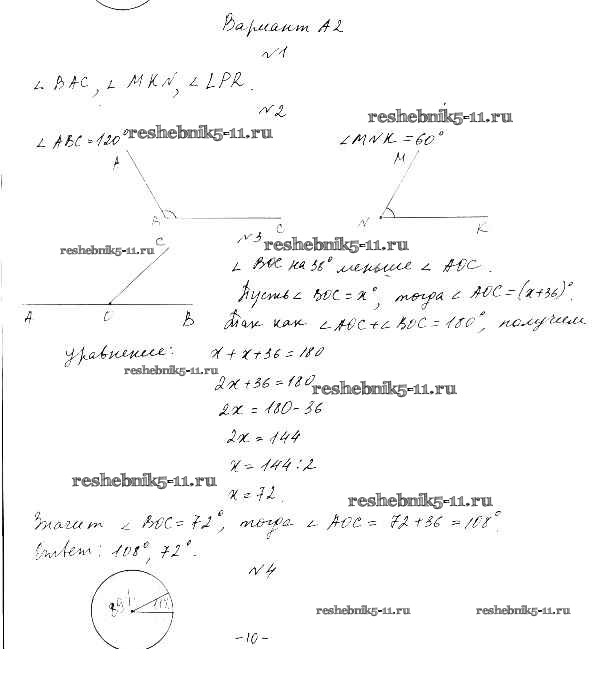 Вариант А2
№1
∠ BAC, ∠ MKN, ∠ LPR.
№2
reshebnik5-11.ru
∠ ABC = 120° reshebnik5-11.ru
∠ MNK = 60°
A
M
A
C
N
K
№3
reshebnik5-11.ru
reshebnik5-11.ru
C
A
O
B
∠ BOC на 36° меньше ∠ AOC.
Пусть ∠ BOC = x°, тогда ∠ AOC = (x+36)°.
Так как ∠ AOC + ∠ BOC = 180°, получим
уравнение: x + x + 36 = 180
reshebnik5-11.ru
2x + 36 = 180
reshebnik5-11.ru
2x = 180 - 36
2x = 144
x = 144 : 2
reshebnik5-11.ru
x = 72.
reshebnik5-11.ru
Значит ∠ BOC = 72°, тогда ∠ AOC = 72 + 36 = 108°.
Ответ: 108°, 72°.
№4
reshebnik5-11.ru
reshebnik5-11.ru
-10-